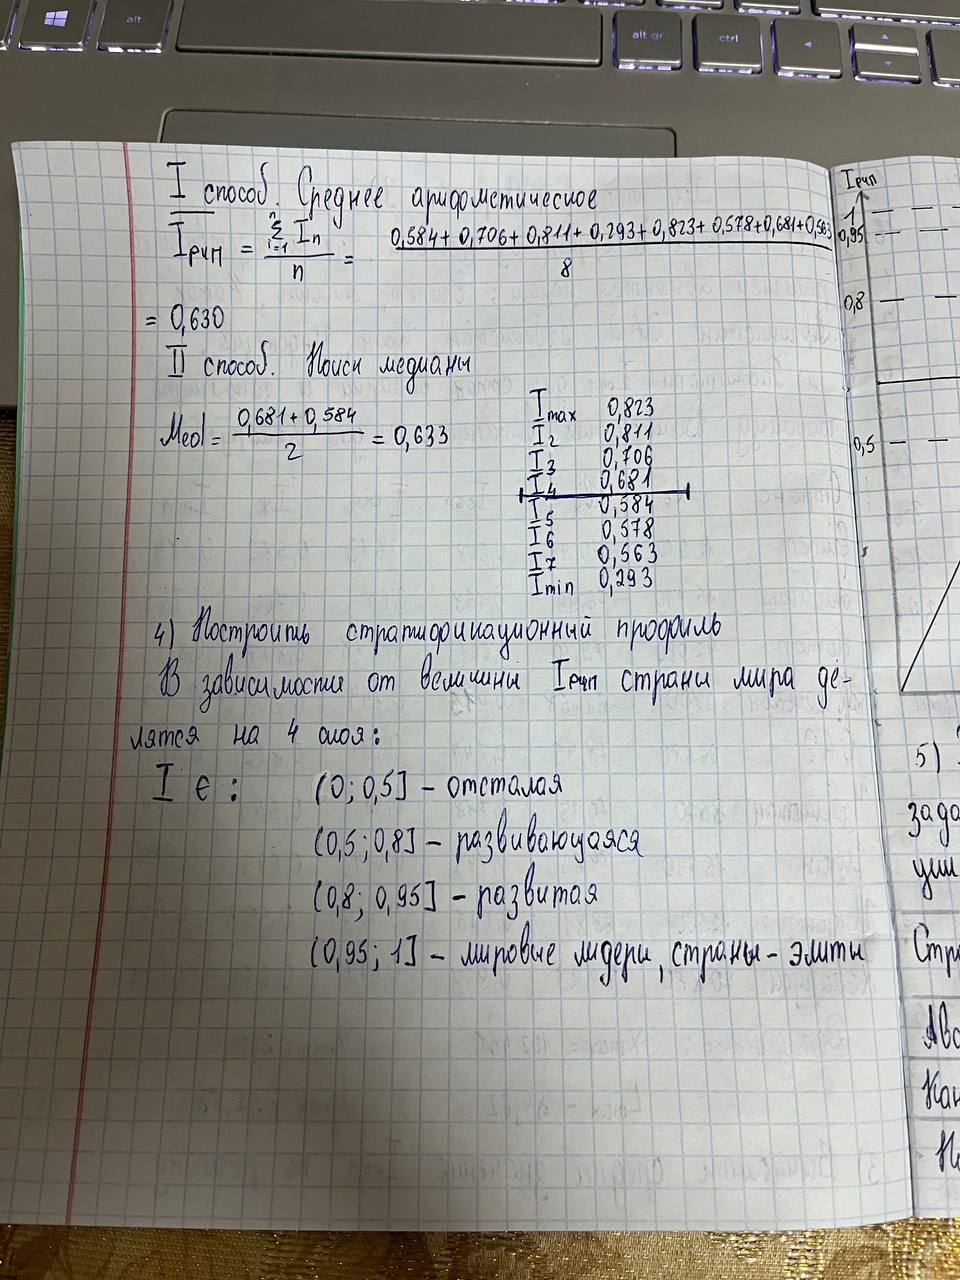 alt
alt gr
ctrl
I способ. Среднее арифметическое
Iрчп = n Σ i=1 In / n = 0,584+0,706+0,811+0,293+0,823+0,578+0,681+0,563 / 8
= 0,630
II способ. Поиск медианы
Med = 0,681+0,584 / 2 = 0,633
Imax 0,823
I2 0,811
I3 0,706
I4 0,681
I5 0,584
I6 0,578
I7 0,563
Imin 0,293
4) Построить стратификационный профиль
В зависимости от величины Iрчп страны мира де-
лятся на 4 слоя:
I ∈ : (0; 0,5] – отсталая
(0,5; 0,8] – развивающаяся
(0,8; 0,95] – развитая
(0,95; 1] – мировые лидеры, страны-элиты
Iрчп
1
0,95
0,8
0,5
5)
зада
ции
Стр
Авс
Кан